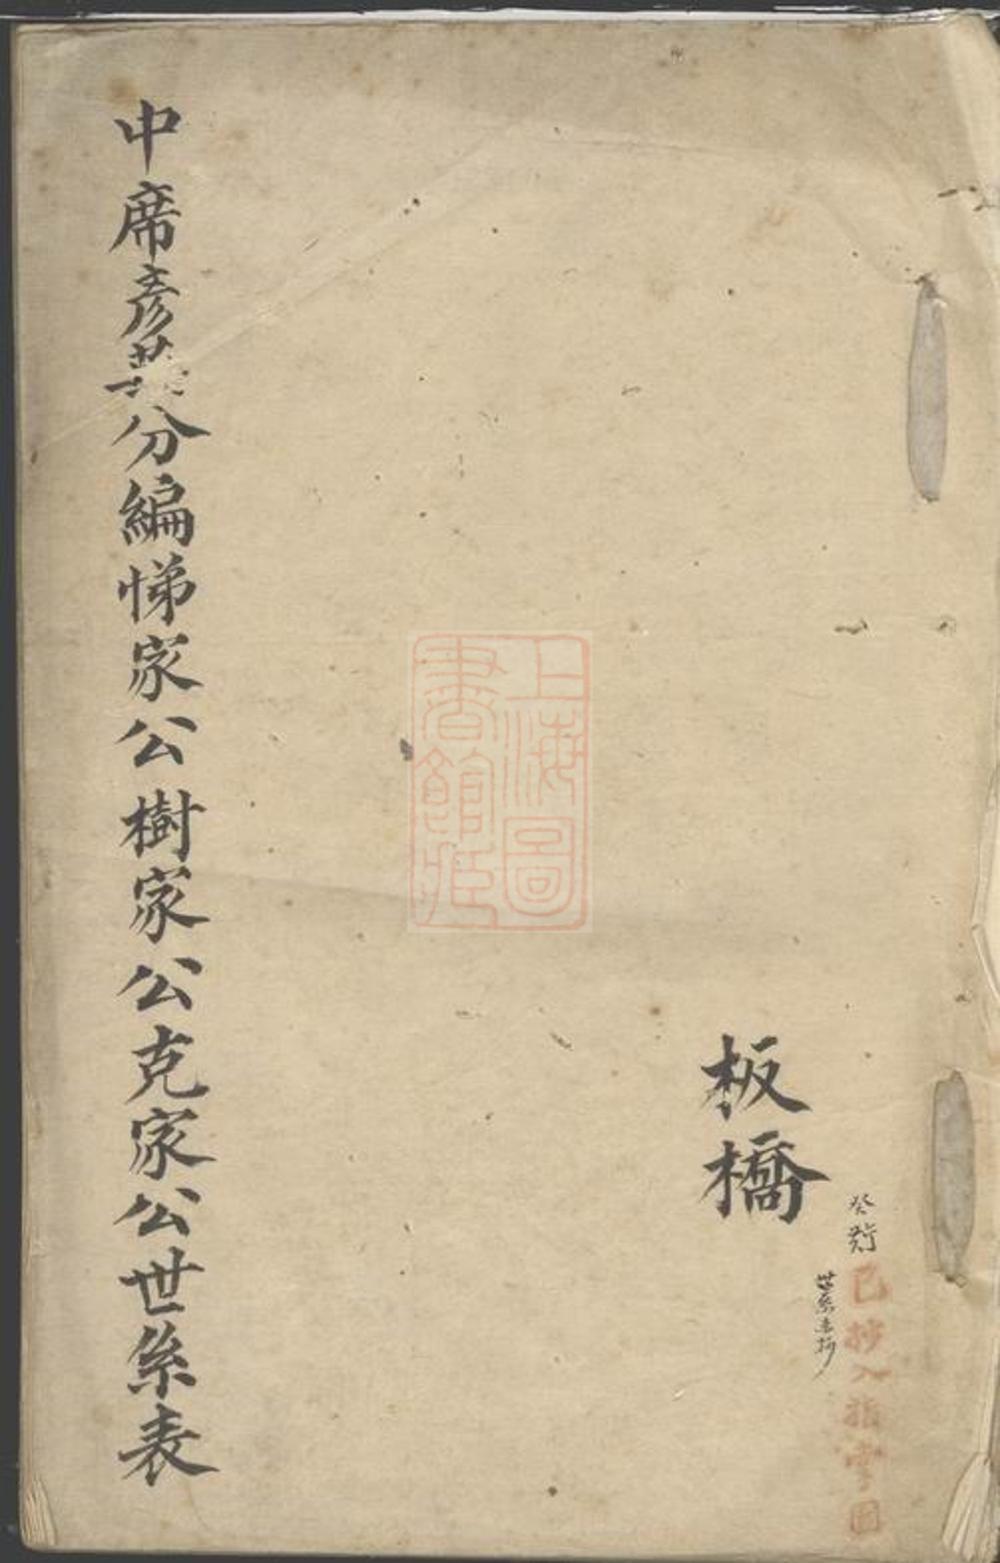 癸
已抄入指掌圖
世系未抄
板橋
上海圖
書館藏
中席彥英分編悌家公樹家公克家公世系表